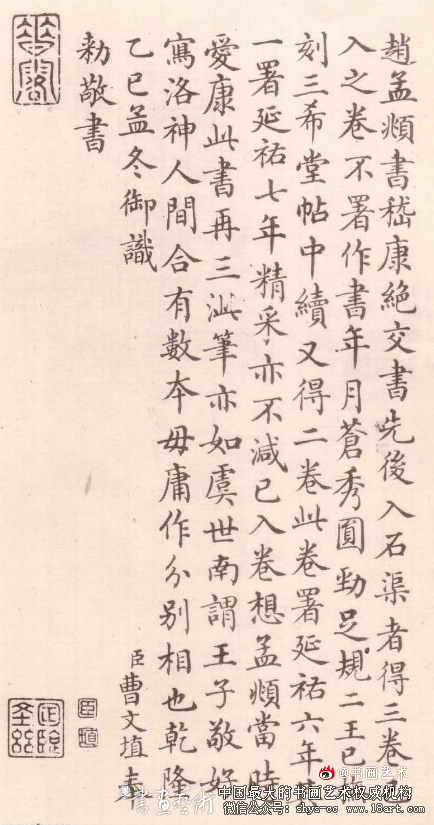 趙孟頫書嵇康絕交書先後入石渠者得三卷先
入之卷不署作書年月蒼秀圓勁足規二王已摹
刻三希堂帖中續又得二卷此卷署延祐六年其
一署延祐七年精采亦不減已入卷想孟頫當時
愛康此書再三泚筆亦如虞世南謂王子敬好
寫洛神人間合有數本毋庸作分別相也乾隆
乙巳孟冬御識
臣曹文埴奉
勅敬書
臣埴
@书画艺术
書畫藝術
中国最大的书画艺术权威机构
微信公众号: shys-cc www.18art.com